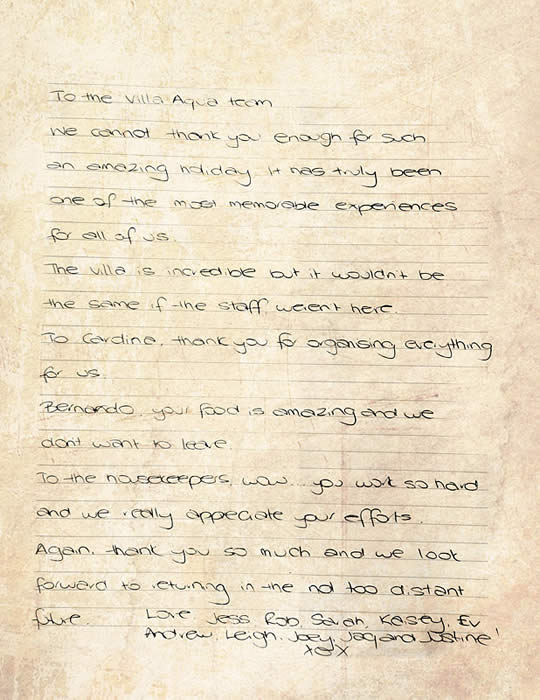 To the Villa Aqua team
We cannot thank you enough for such
an amazing holiday. It has truly been
one of the most memorable experiences
for all of us.
The villa is incredible but it wouldn't be
the same if the staff weren't here.
To Caroline, thank you for organising everything
for us.
Bernando, your food is amazing and we
don't want to leave.
To the housekeepers, wow... you work so hard
and we really appreciate your efforts.
Again, thank you so much and we look
forward to returning in the not too distant
future. Love Jess, Rob, Sarah, Kasey, Ev
Andrew, Leigh, Joey, Jaq and Justine!
xox